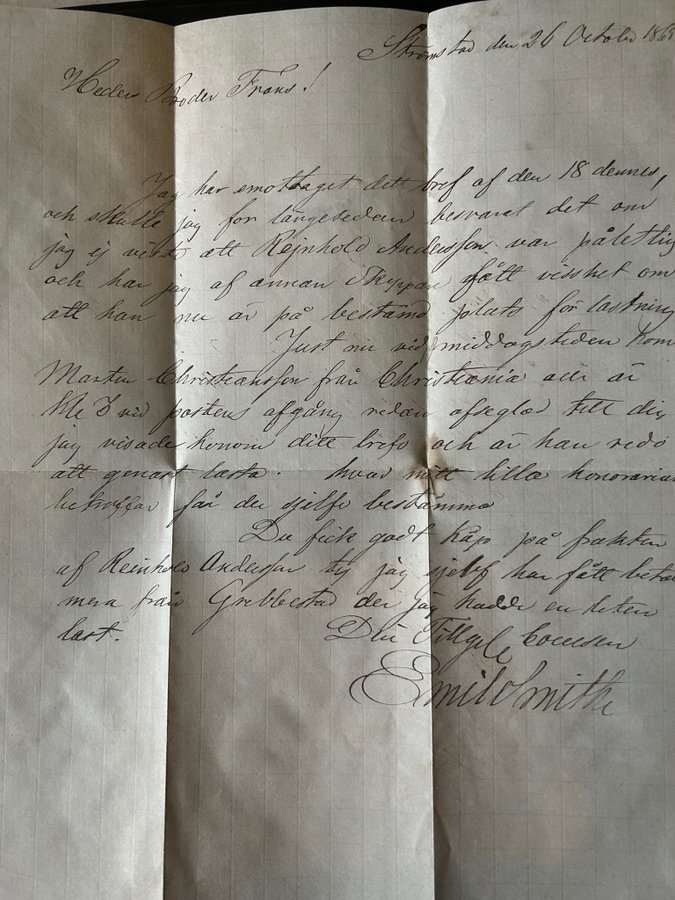 Strömstad den 26 October 186
Heders Broder Frans!
Jag har emottaget ditt bref af den 18 dennes,
och skulle jag for längesedan besvarat det om
jag ej visste att Rejnhold Andersson var pålitlig
och har jag af annan Skeppare fått visshet om
att han nu är på bestämd plats för lastning
Just nu vid middagstiden kom
Marten Christiansson från Christiania och är
Kl vid postens afgång redan afseglad till dig
jag visade honom ditt bref och är han redo
att genast lasta. hvad mitt lilla honorarium
beträffar får du sjelf bestämma
Du fick godt köp på frakten
af Reinhold Andersson ty jag sjelf har fått betala
mera från Grebbestad der jag hadde en liten
last.
Din Tillgifne
Emil Smith